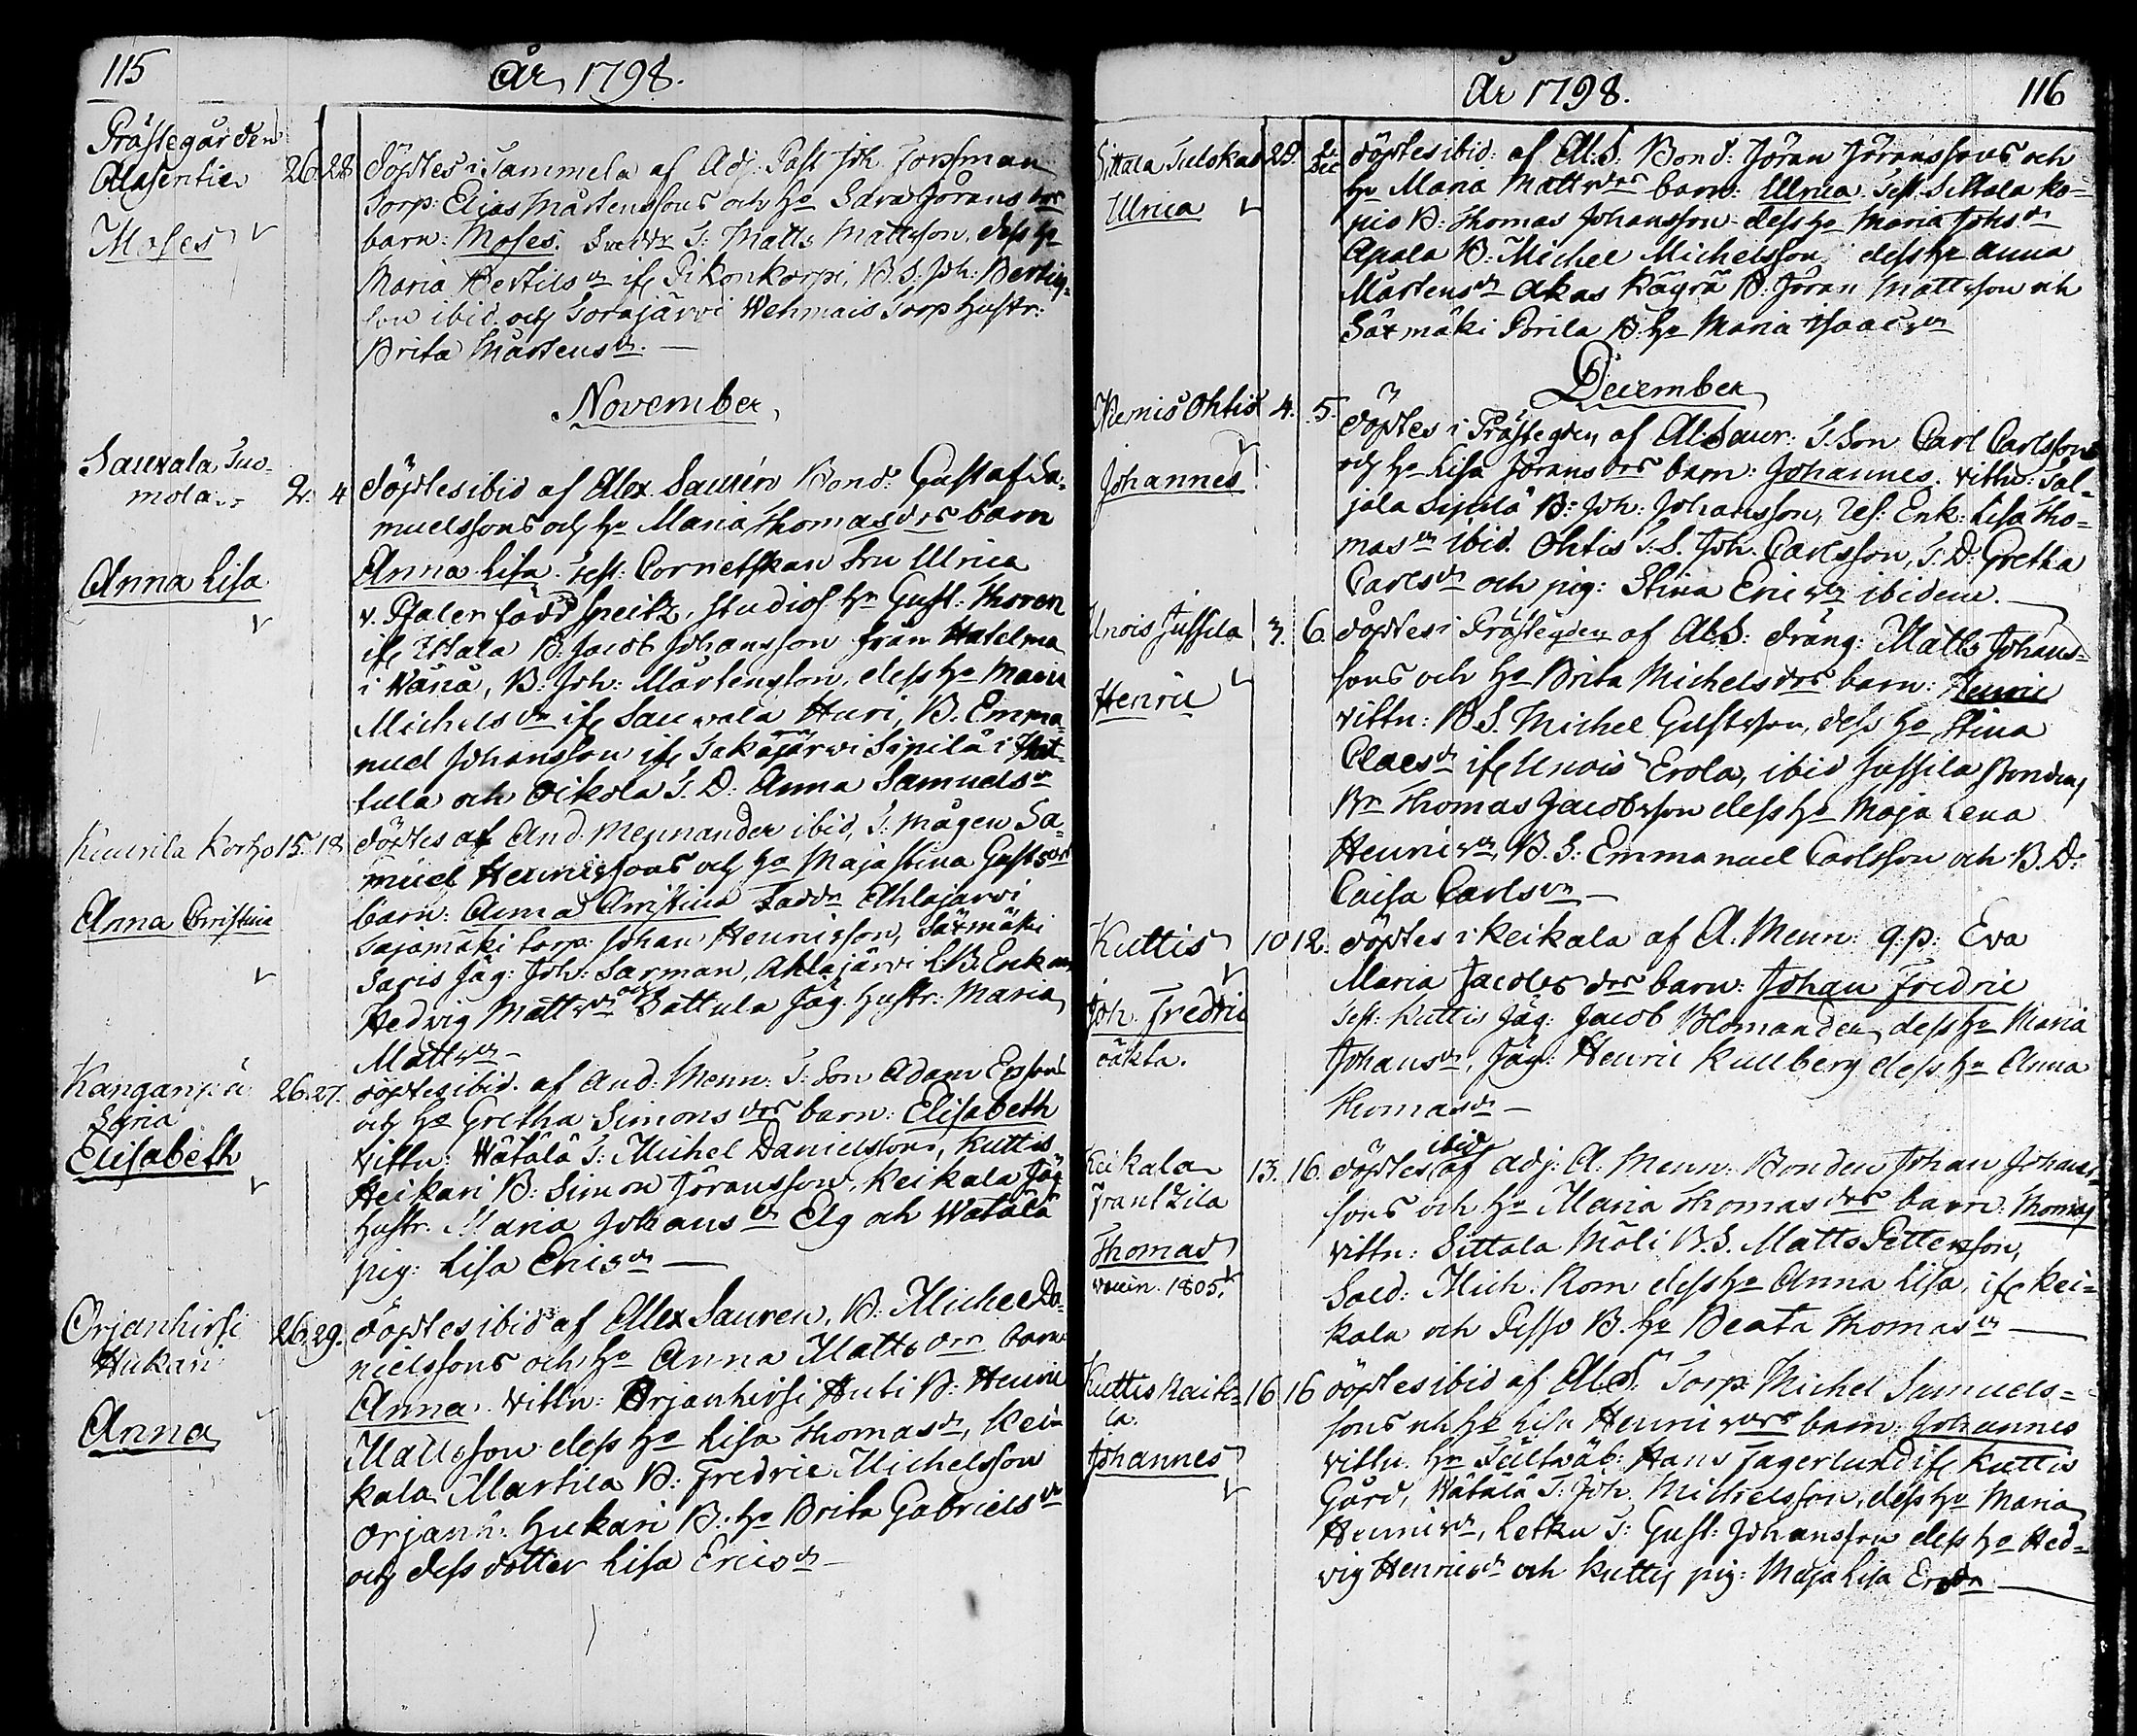 115
År 1798.
Prästegården
Alasentie 26. 28
Moses
döptes i Tammela af Adj. Past Joh Forssman
Torp: Elias Mårtenssons och H: Sara Jörans drs
barn: Moses. T: Matts Mattsson, dess H:
Maria Bertils dr ifr Pikonkorpi, B. S: Joh: Bertils=
son ibid. och Torajärwi Wehmais Torp Hustr:
Brita Mårtens dr.
November
Sauvala Tuo=
mola 2. 4
Anna Lisa
döptes ibid af Alex Saurén Bond: Gustaf Sa=
muelssons och H: Maria Thomas drs barn
Anna Lisa. Test: Cornetskan Fru Ulrica
v. Pfaler född Speitz, Studios Hr Gust: Thoren
ifr Uttala B: Jacob Johansson från Hatelma
i Wånå, B: Joh: Mårtensson, dess H: Maria
Michels dr ifr Sauvala Huri, B. Emma=
nuel Johansson ifr Takajärwi Sipilä i Hat=
tula och Oikola T. D: Anna Samuels dr
Kuurila Korho 15. 18
Anna Christina
döptes af And. Mennander ibid, T: mågen Sa=
muel Henricssons och H: Maja Stina Gusts drs
barn: Anna Christina Faddr Ahlajärwi
Sajamäki torp: Johan Henricsson, Säxmäki
Saris Jäg: Joh: Sarman, Ahlajärwi L. B. Enkan
Hedvig Matts dr och Sattula Jäg. Hustr: Maria
Matts dr
Kanganpä
Soria 26. 27.
Elisabeth
döptes ibid. af And: Menn: T: Son Adam Ers sons
och H: Gretha Simons drs barn: Elisabeth
Vittn: Wätälä T: Michel Danielsson, Kuttis
Heikari B: Simon Jöransson, Keikala Jäg
Hustr. Maria Johans dr Elg och Wätälä
pig: Lisa Erics dr
Orjanhirsi
Hukari 26. 29.
Anna
döptes ibid af Alex Sauren, B: Michel Da=
nielssons och H: Anna Matts drs barn
Anna. Vittn: Orjanhirsi Huti B: Henric
Mattsson dess H: Lisa Thomas dr, Kei=
kala Martila B: Fredric Michelsson
Orjanh: Hukari B. H: Brita Gabriels dr
och dess dotter Lisa Erics dr
År 1798. 116
Sittala 29. 2 Dec
Ulrica
döptes ibid: af Al. S: Bond: Jöran Jöranssons och
H: Maria Matts drs barn: Ulrica Test. Sittala Ko=
pio B: Thomas Johansson dess H: Maria Johs dr
Apala B: Michel Michelsson dess H: Anna
Mårtens dr Akas Kägrä B. Jöran Mattsson och
Säxmäki Porila B: H: Maria Isaacs dr
December
Niemis Ohtis 4. 5.
Johannes
döptes i Prästegden af Al: Saur: T: Son Carl Carlssons
och H: Lisa Jörans drs barn: Johannes. Vittn: Jal=
jala Sipilä B: Joh: Johansson, Enk: Lisa Tho=
mas dr ibid. Ohtis T: S. Joh. Carlsson, T: D: Gretha
Carls dr och pig: Stina Erics dr ibidem.
Unois Jussila 3. 6.
Henric
döptes i Prästegden af Al. S: dräng: Matts Johans=
sons och H: Brita Michels drs barn: Henric
Vittn: B S. Michel Gustsson, dess H: Stina
Claes dr ifr Unois Erola, ibid Jussila Bondens
Br Thomas Jacobsson dess H: Maja Lena
Henrics dr, B. S: Emmanuel Carlsson och B. D:
Caisa Carls dr
Kuttis 10 12.
Joh. Fredric
oäkta.
döptes i Keikala af A. Menn: q. p: Eva
Maria Jacobs drs barn: Johan Fredric
Test: Kuttis Jäg: Jacob Blomander, dess H: Maria
Johans dr, Jäg: Henric Kullberg dess H: Anna
Thomas dr
Keikala
Frantzila 13. 16.
Thomas
vaccin. 1805.
döptes ibid af Adj: A: Menn: Bonden Johan Johans=
sons och H: Maria Thomas drs barn: Thomas
Vittn: Sittala Möli B. S. Matts Pettersson,
Sold: Mich. Rom dess H: Anna Lisa, ifr Kei=
kala och Pesso B. H: Beata Thomas dr
Kuttis Raitt=
la. 16 16
Johannes
döptes ibid af Al. S: Torp: Michel Samuels=
sons och H: Lisa Henrics drs barn: Johannes
Vittn. Hr Fältwäb: Hans Fagerlund ifr Kuttis
Gård, Wätälä T: Joh. Michelsson, dess H: Maria
Henrics dr, Letku T: Gust: Johansson dess H: Hed=
vig Henrics dr och Kuttis pig: Maja Lisa Ers dr